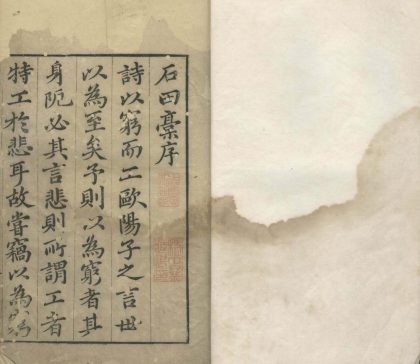 石田稾序
詩以窮而工歐陽子之言世
以為至矣予則以為窮者其
身阨必其言悲則所謂工者
特工於悲耳故嘗竊以為窮